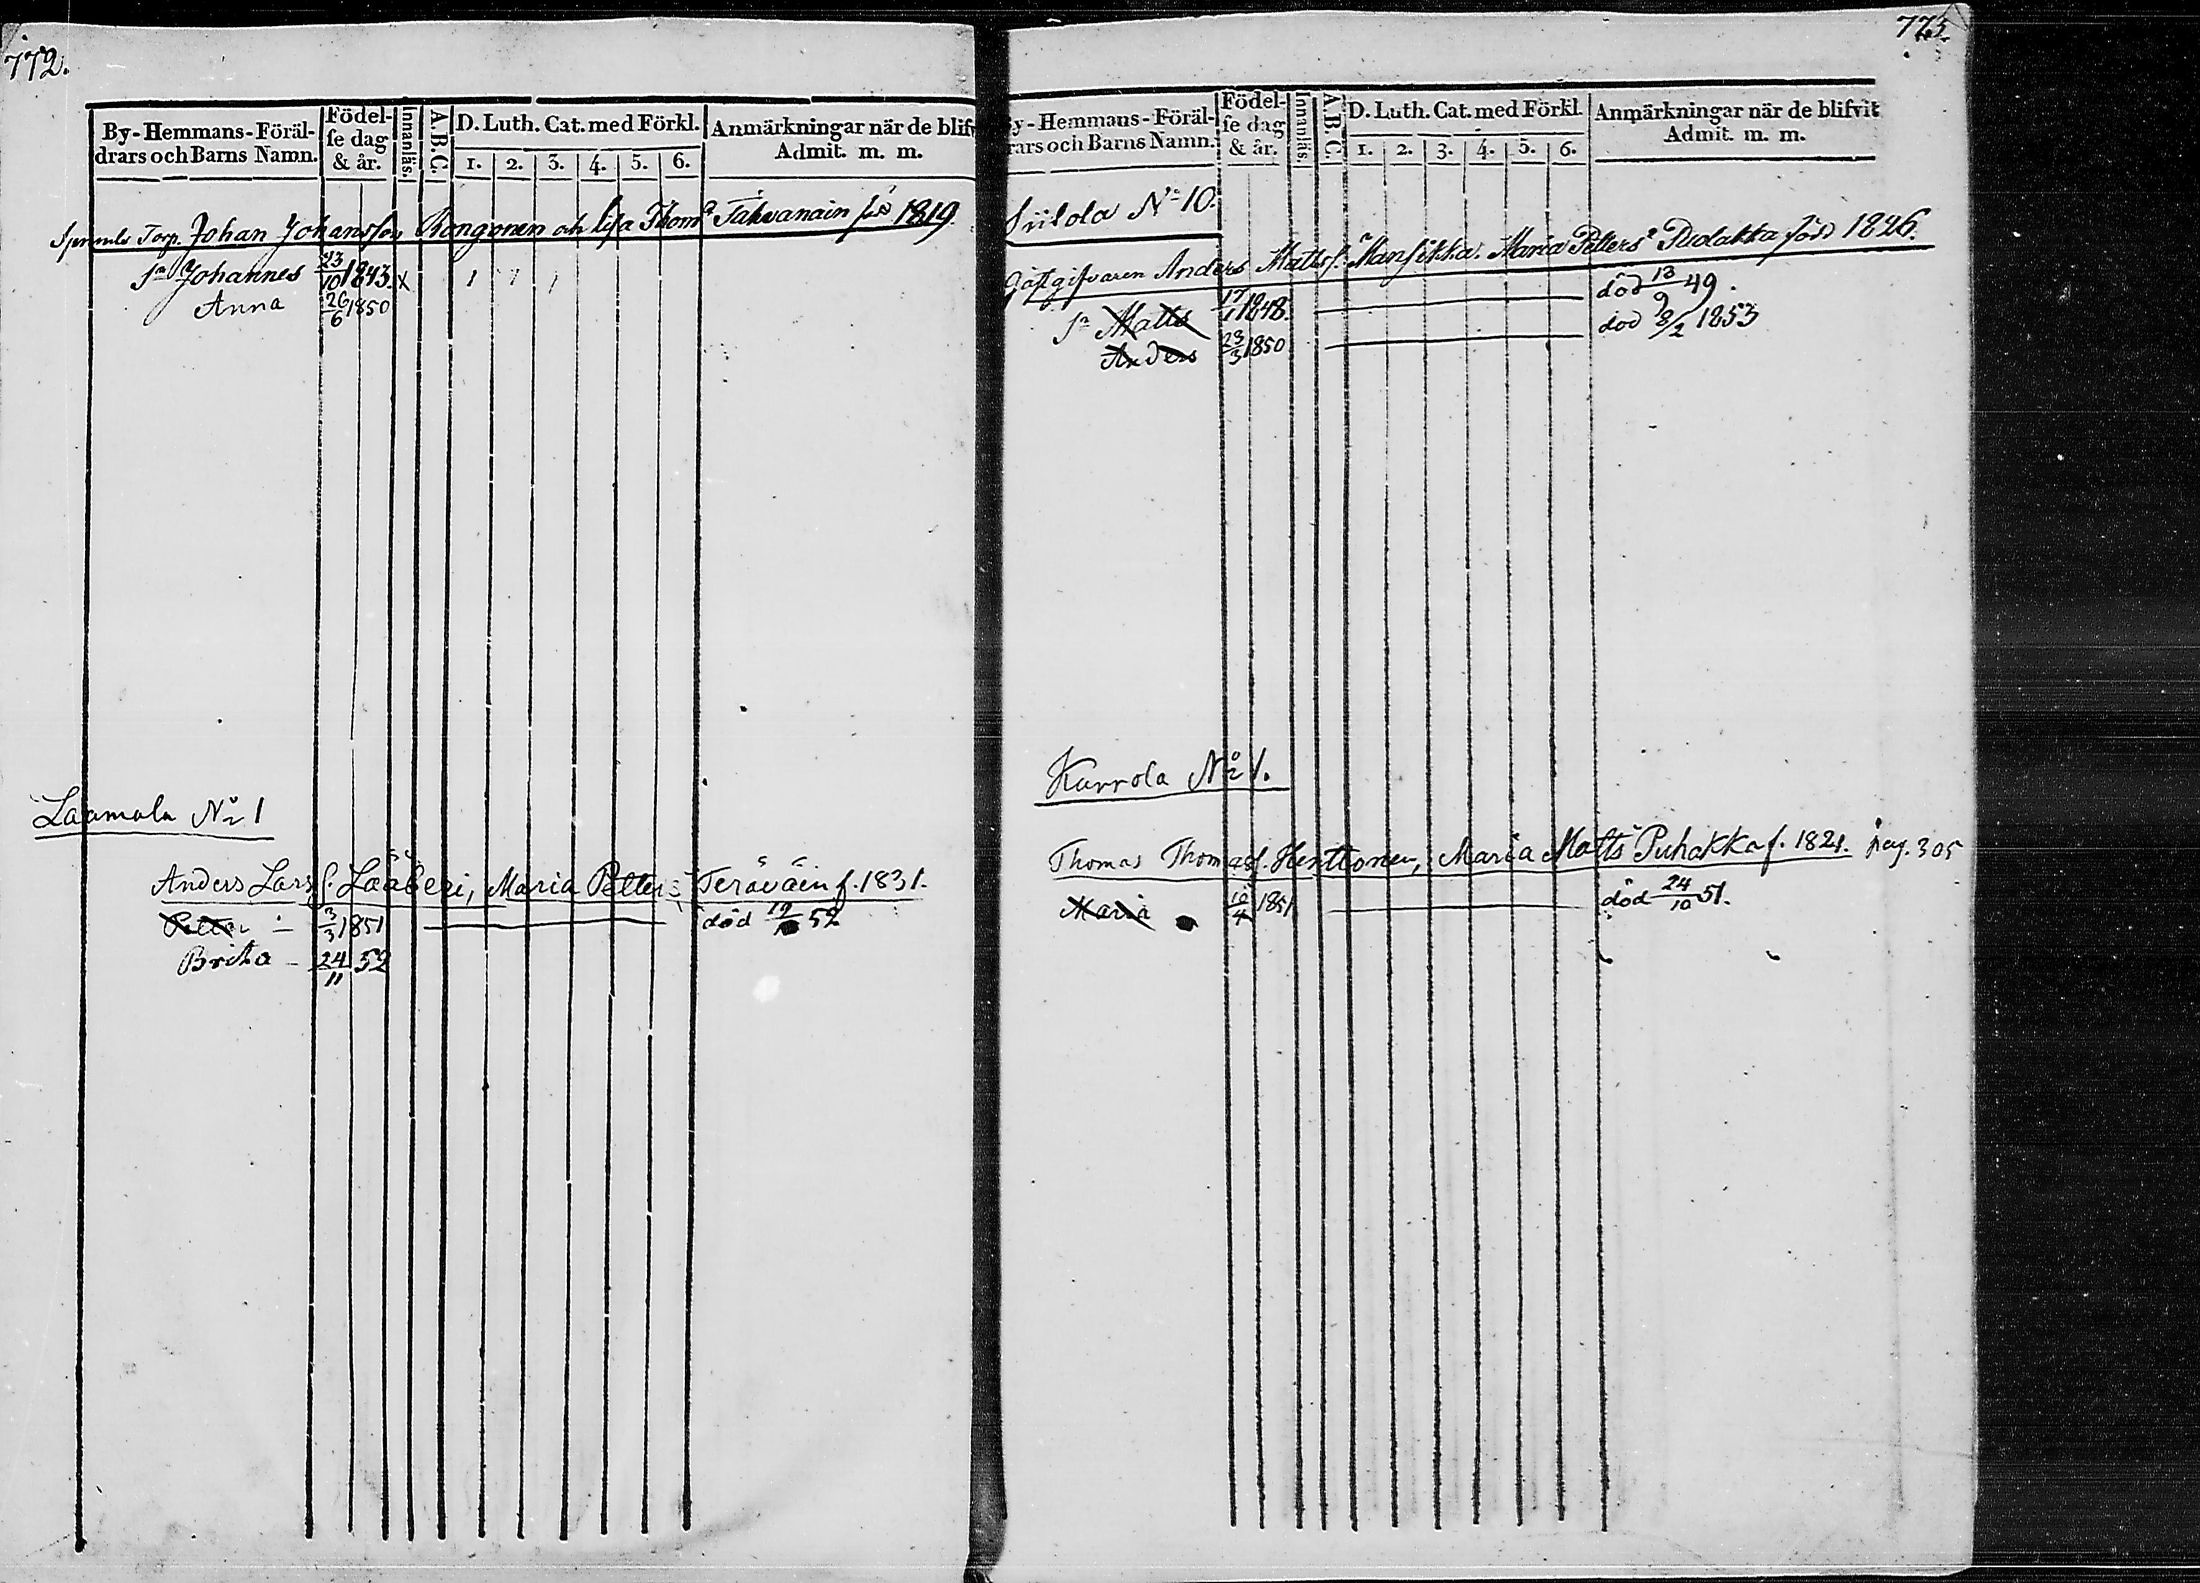 772.
By-Hemmans-Föräl-
drars och Barns Namn.
Födel-
se dag
& år.
Innanläs.
A.B.C.
D. Luth. Cat. med Förkl.
1. 2. 3. 4. 5. 6.
Anmärkningar när de blifv
Admit. m. m.
Torp. Johan Johansson Rongonen och Lisa Thoms Tahvanain 1819
Sn Johannes 23/10 1843. x 1 1 1
Anna 26/6 1850
Laamala No 1
Anders Lars f. Lääveri, Maria Petters Teräväin f. 1831.
Petter - 3/3 1851 död 19/ 52
Brita - 24/11 52
773.
By-Hemmans-Föräl-
rars och Barns Namn.
Födel-
se dag
& år.
Innanläs.
A.B.C.
D. Luth. Cat. med Förkl.
1. 2. 3. 4. 5. 6.
Anmärkningar när de blifvit
Admit. m. m.
Siilola No 10.
Gästgifvaren Anders Matts f. Mansikka. Maria Petters Pudakka född 1826.
Sn Matts 17/1 1848. död 13/9 49.
Anders 23/3 1850 död 8/2 1853
Kurrola No 1.
Thomas Thomas f. Henttonen, Maria Matts Puhakka f. 1821. pag. 305
Maria 10/4 1851 död 24/10 51.